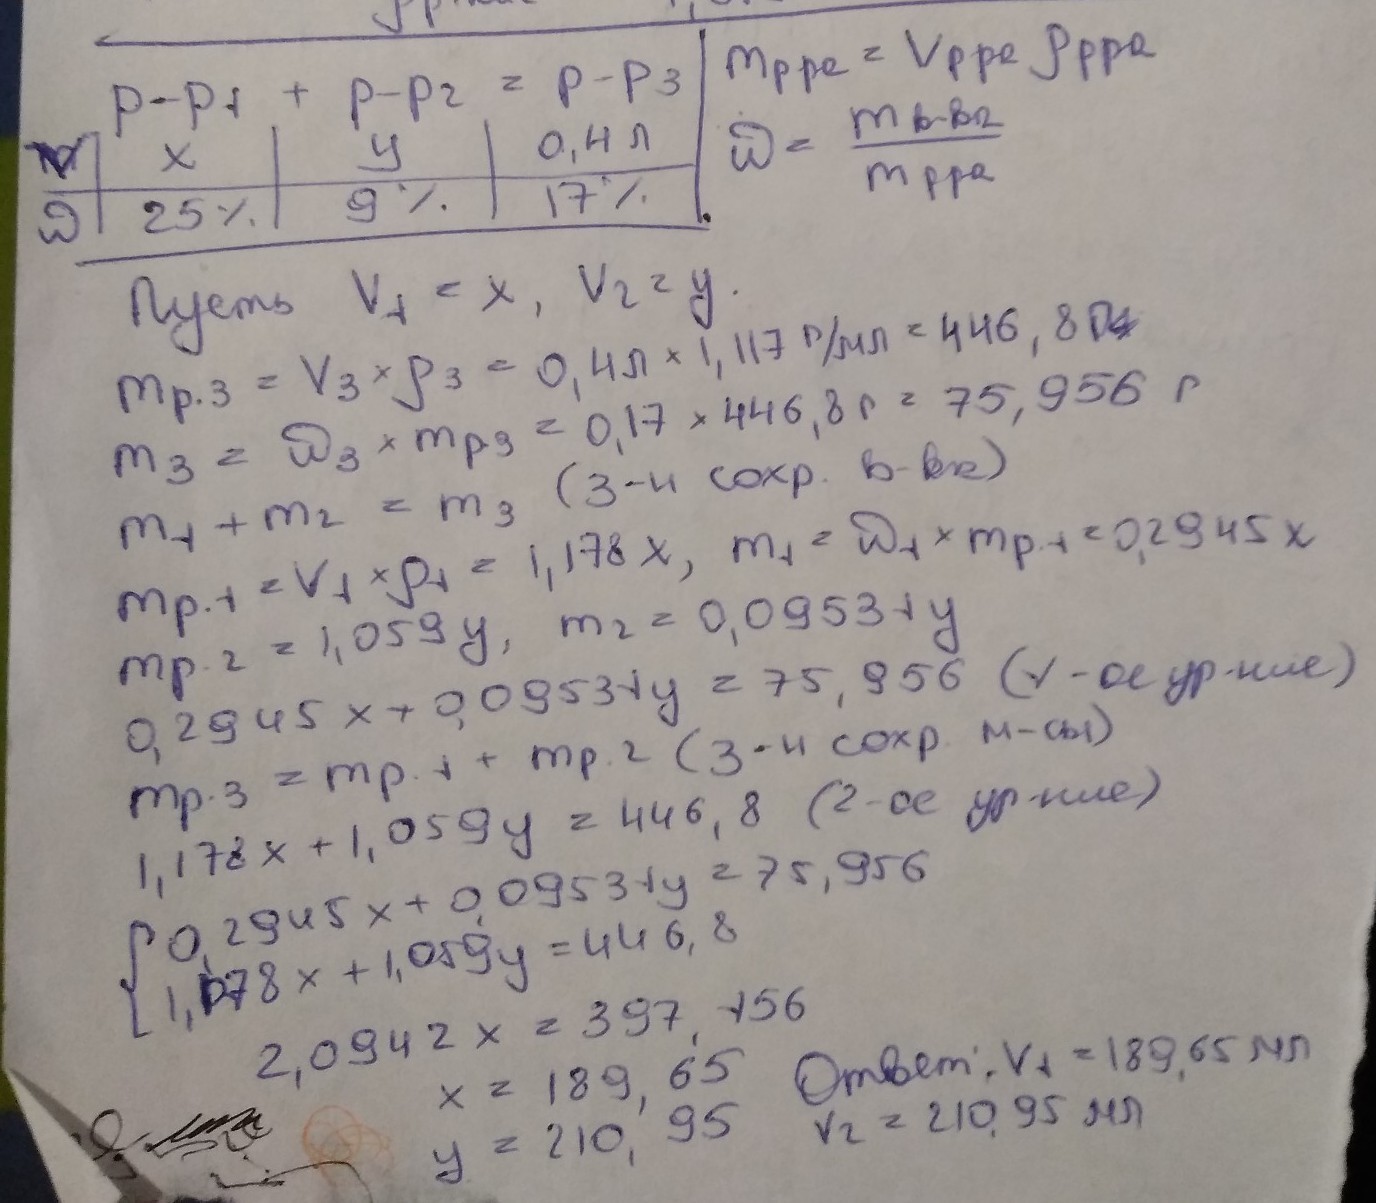 p-p1 + p-p2 = p-p3
mppa = Vppa ρppa
x y 0,4 л
ω 25% 9% 17%
ω = mв-ва / mppa
Пусть V1 = x, V2 = y.
mp.3 = V3 × ρ3 = 0,4л × 1,117 г/мл = 446,8 г
m3 = ω3 × mp3 = 0,17 × 446,8 г = 75,956 г
m1 + m2 = m3 (З-н сохр. в-ва)
mp.1 = V1 × ρ1 = 1,178 x, m1 = ω1 × mp.1 = 0,2945 x
mp.2 = 1,059y, m2 = 0,09531y
0,2945x + 0,09531y = 75,956 (1-ое ур-ние)
mp.3 = mp.1 + mp.2 (З-н сохр. м-сы)
1,178x + 1,059y = 446,8 (2-ое ур-ние)
{ 0,2945x + 0,09531y = 75,956
1,178x + 1,059y = 446,8
2,0942x = 397,156
x = 189,65
y = 210,95
Ответ: V1 = 189,65 мл
V2 = 210,95 мл